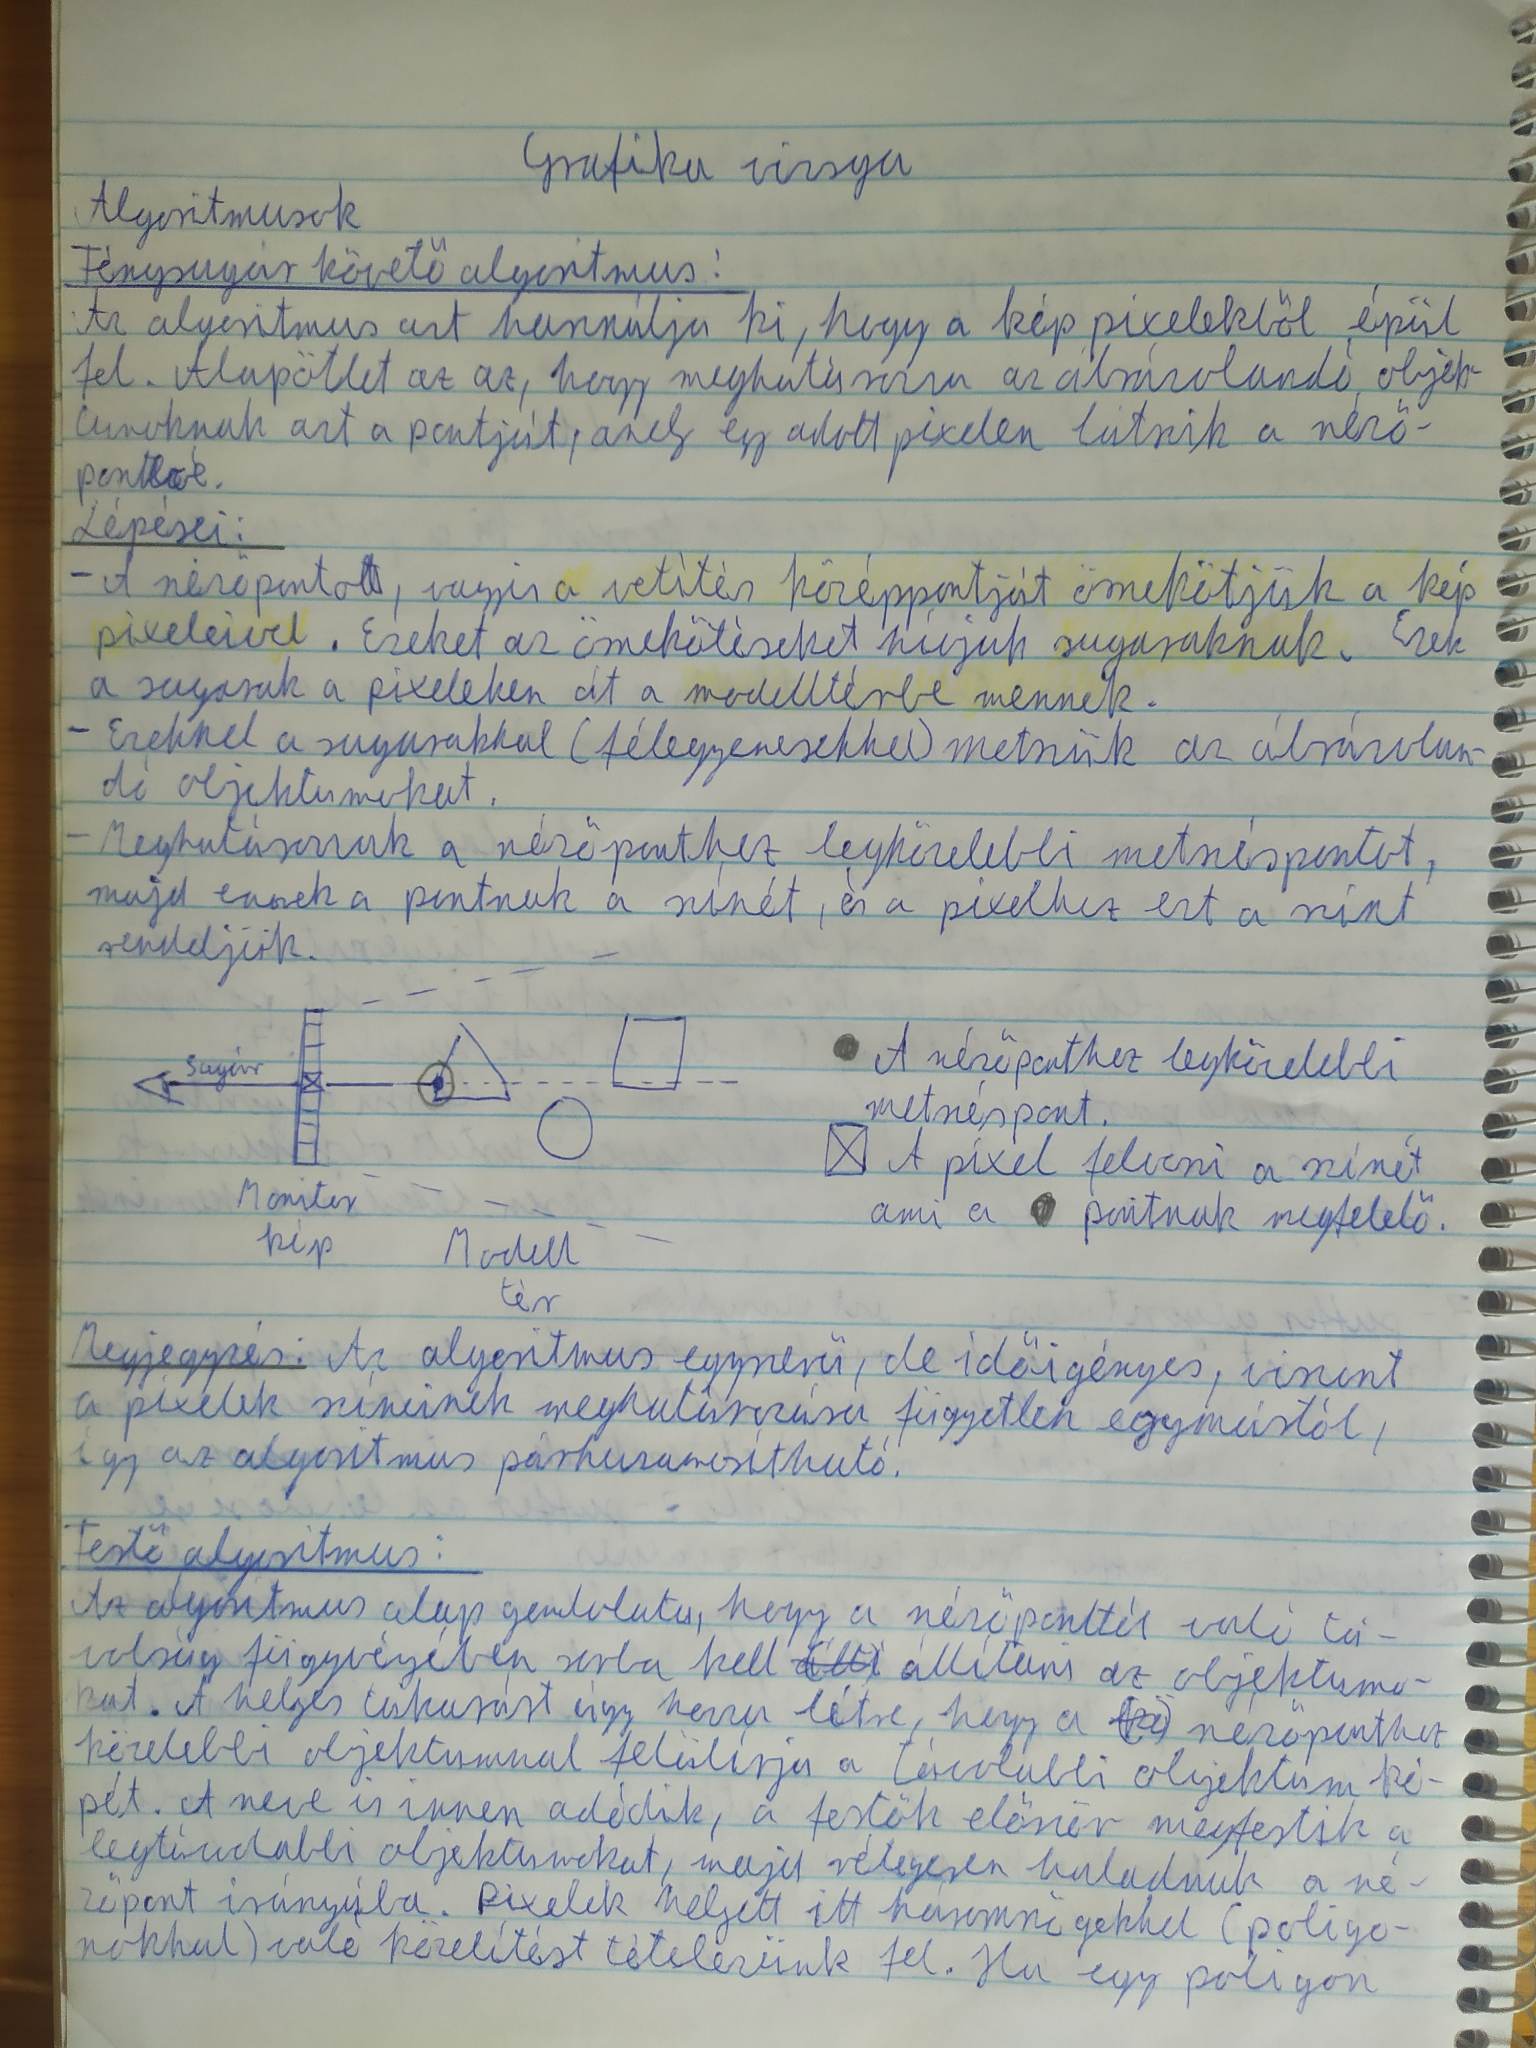 Grafika vizsga
Algoritmusok
Fénysugár követő algoritmus:
Az algoritmus azt használja ki, hogy a kép pixelekből épül
fel. Alapötlet az az, hogy meghatározza az ábrázolandó objek-
tumoknak azt a pontját, amely egy adott pixelen látszik a néző-
pontból.
Lépései:
- A nézőpontot, vagyis a vetítés középpontját összekötjük a kép
pixeleivel. Ezeket az összekötéseket hívjuk sugaraknak. Ezek
a sugarak a pixeleken át a modelltérbe mennek.
- Ezekkel a sugarakkal (félegyenesekkel) metszük az ábrázolan-
dó objektumokat.
- Meghatározzuk a nézőponthez legközelebbi metszéspontot,
majd ennek a pontnak a színét, és a pixelhez ezt a színt
rendeljük.
Sugár
Monitor
kép
Modell
tér
A nézőponthez legközelebbi
metszéspont.
A pixel felveszi a színét
ami a pontnak megfelelő.
Megjegyzés: Az algoritmus egyszerű, de időigényes, viszont
a pixelek színeinek meghatározása független egymástól,
így az algoritmus párhuzamosítható.
Festő algoritmus:
Az algoritmus alap gondolata, hogy a nézőponttól való tá-
volság függvényében sorba kell állítani az objektumo-
kat. A helyes takarást úgy hozza létre, hogy a nézőponthez
közelebbi objektummal felülírja a távolabbi objektum ké-
pét. A neve is innen adódik, a festők először megfestik a
legtávolabbi objektumokat, majd rétegesen haladnak a né-
zőpont irányába. Pixelek helyett itt háromszögekkel (poligo-
nokkal) való közelítést tételezünk fel. Ha egy poligon